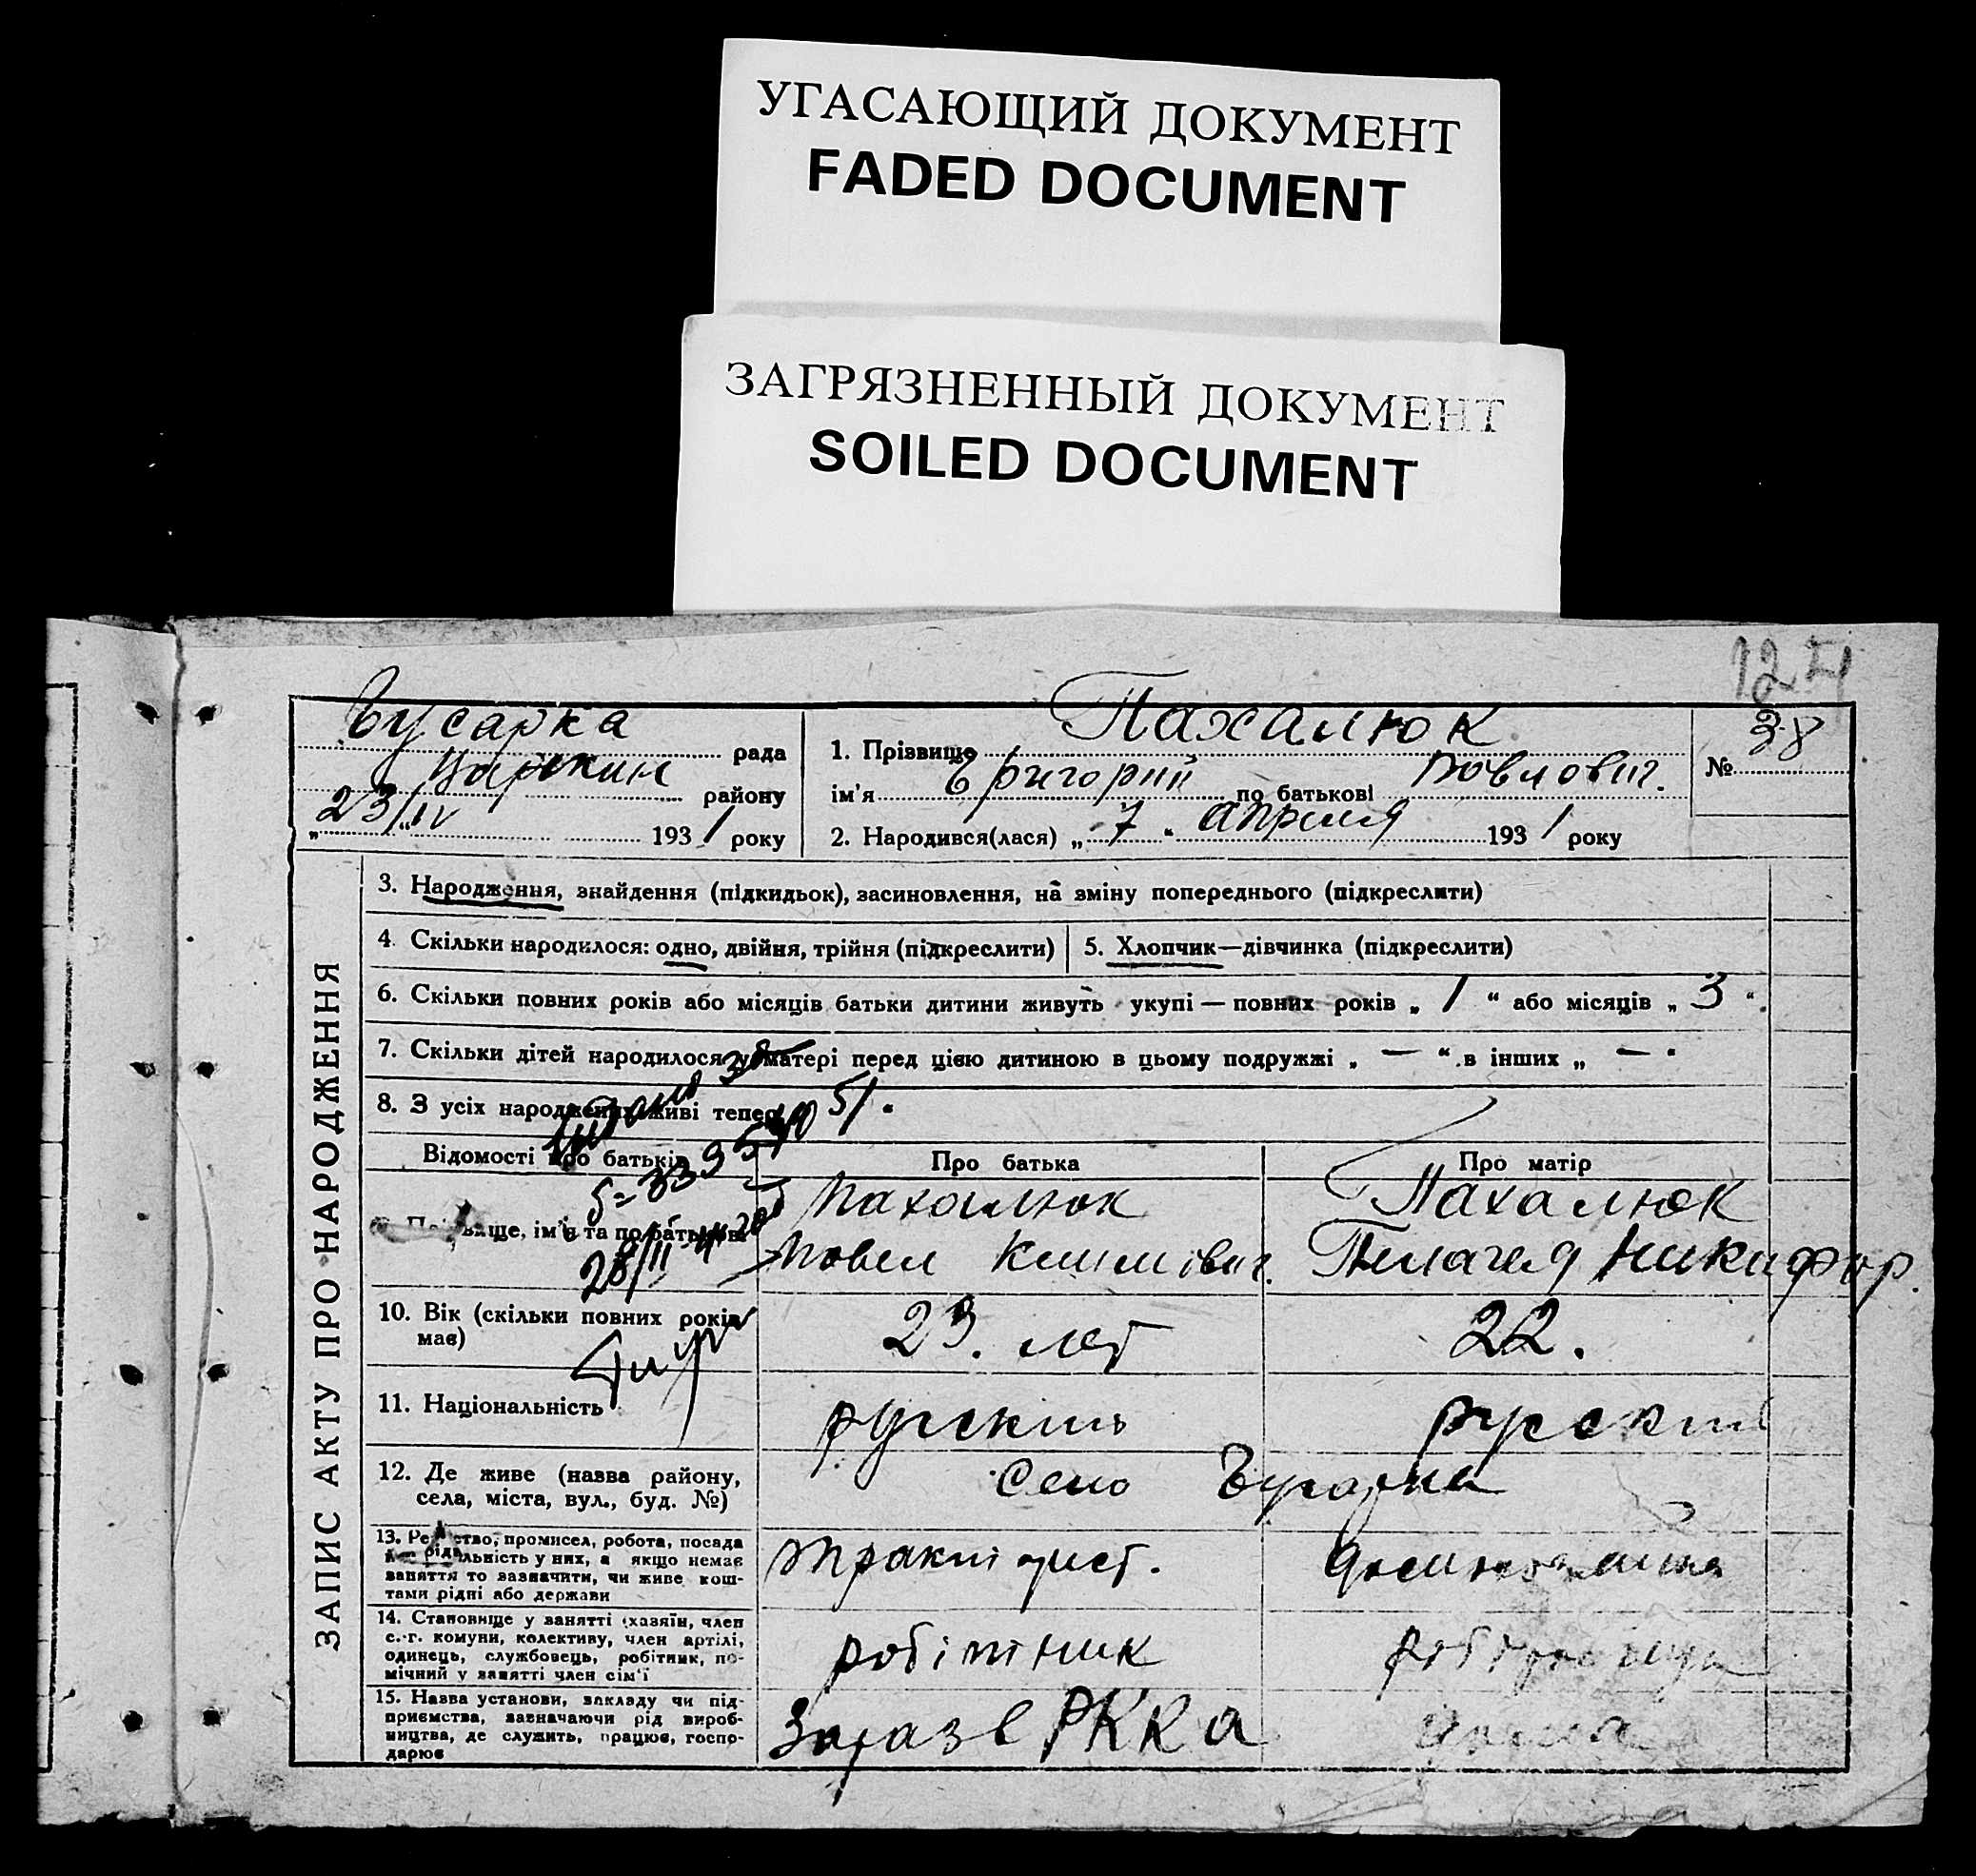 УГАСАЮЩИЙ ДОКУМЕНТ
FADED DOCUMENT
ЗАГРЯЗНЕННЫЙ ДОКУМЕНТ
SOILED DOCUMENT
рада
району
„23/IV 1931 року
1. Прізвище Пахалюк
ім'я Григорий по батькові Повлович.
2. Народився(лася) „7„ апреля 1931 року
№ 38
ЗАПИС АКТУ ПРО НАРОДЖЕННЯ
3. Народження, знайдення (підкидьок), засиновлення, на зміну попереднього (підкреслити)
4. Скільки народилося: одно, двійня, трійня (підкреслити)
5. Хлопчик—дівчинка (підкреслити)
6. Скільки повних років або місяців батьки дитини живуть укупі — повних років „ 1 “ або місяців „ 3 “.
7. Скільки дітей народилося у матері перед цією дитиною в цьому подружжі „ — “ в інших „ — “
8. З усіх народжених живі тепер
Відомості про батьків
Про батька
Про матір
ім'я та по батькові
Пахалюк
Повел Климівич.
Пахалюк
Пелагея Никифор.
10. Вік (скільки повних років має)
23. лет
22.
11. Національність
русский
русский
12. Де живе (назва району,
села, міста, вул., буд. №)
Село
13. Ремество, промисел, робота, посада
у них, а якщо немає
заняття то зазначити, чи живе кош-
тами рідні або держави
14. Становище у занятті (хазяїн, член
с.-г. комуни, колективу, член артілі,
одинець, службовець, робітник, по-
мічний у занятті член сім'ї
робітник
15. Назва установи, закладу чи під-
приємства, зазначаючи рід вироб-
ництва, де служить, працює, госпо-
дарює
Зараз в РККА